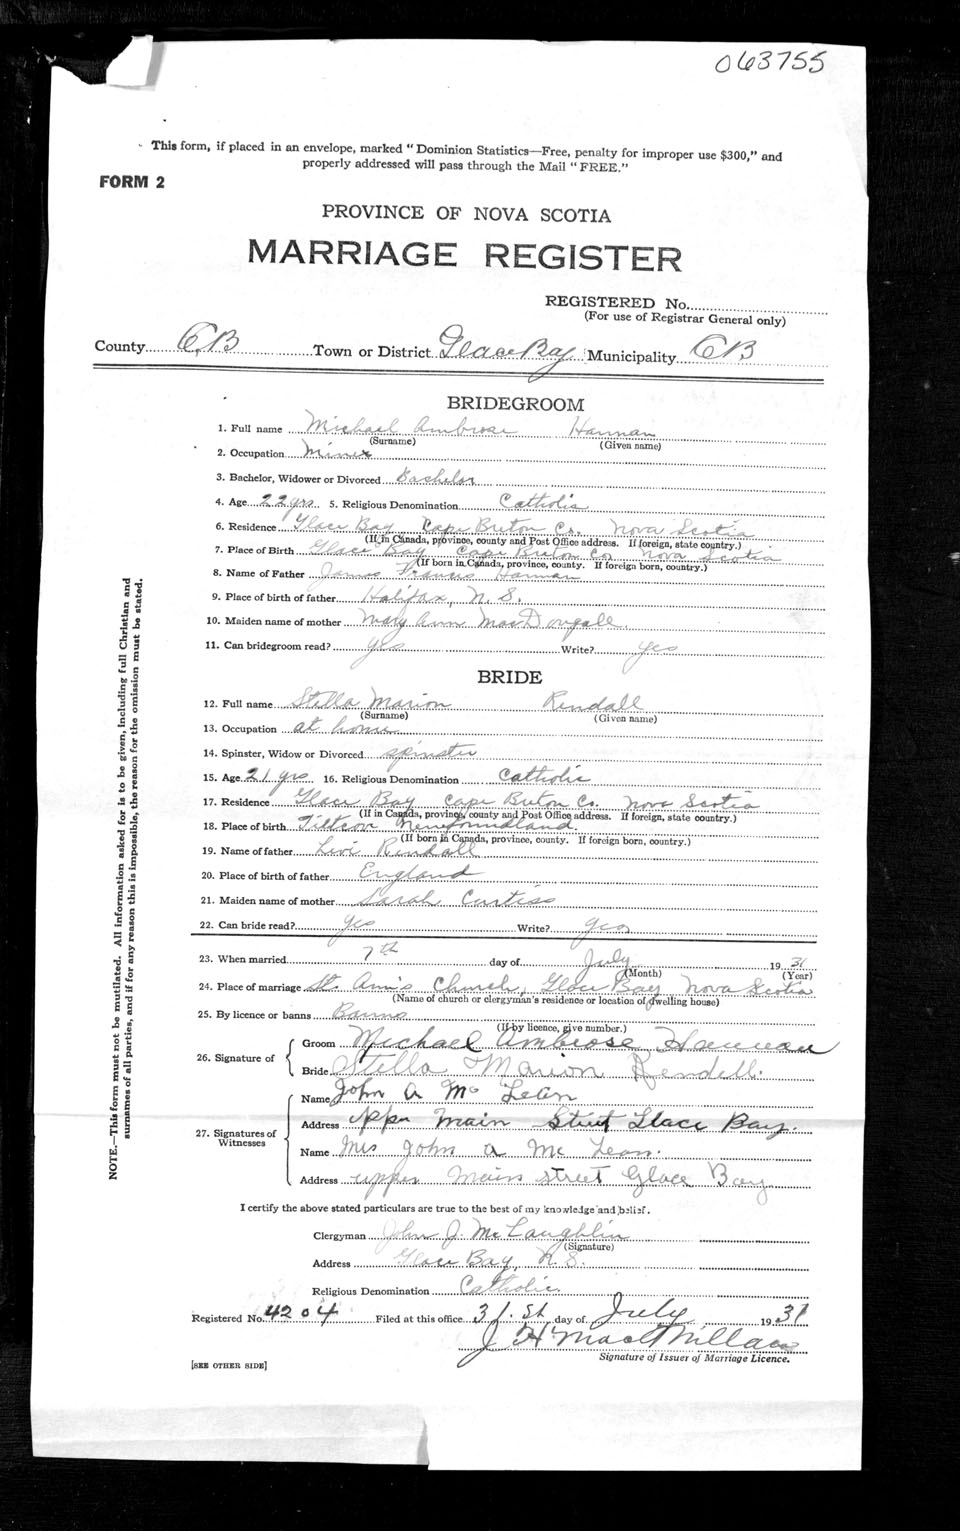 063755
This form, if placed in an envelope, marked "Dominion Statistics—Free, penalty for improper use $300," and
properly addressed will pass through the Mail "FREE."
FORM 2
PROVINCE OF NOVA SCOTIA
MARRIAGE REGISTER
REGISTERED No.
(For use of Registrar General only)
County CB Town or District Glace Bay Municipality CB
BRIDEGROOM
1. Full name Michael Ambrose Hannan
(Surname) (Given name)
2. Occupation Miner
3. Bachelor, Widower or Divorced Bachelor
4. Age 22 yrs. 5. Religious Denomination Catholic
6. Residence Glace Bay Cape Breton Co., Nova Scotia
(If in Canada, province, county and Post Office address. If foreign, state country.)
7. Place of Birth Glace Bay Cape Breton Co Nova Scotia
(If born in Canada, province, county. If foreign born, country.)
8. Name of Father James Francis Hannan
9. Place of birth of father Halifax, N. S.
10. Maiden name of mother Mary Ann MacDougall
11. Can bridegroom read? yes Write? yes
BRIDE
12. Full name Stella Marion Rendall
(Surname) (Given name)
13. Occupation at home
14. Spinster, Widow or Divorced spinster
15. Age 21 yrs 16. Religious Denomination Catholic
17. Residence Glace Bay Cape Breton Co. Nova Scotia
(If in Canada, province, county and Post Office address. If foreign, state country.)
18. Place of birth Tilton Newfoundland.
(If born in Canada, province, county. If foreign born, country.)
19. Name of father Levi Rendall
20. Place of birth of father England
21. Maiden name of mother Sarah Curtiss
22. Can bride read? yes Write? yes
23. When married 7th day of July 1931
(Month) (Year)
24. Place of marriage St. Ann's Church, Glace Bay Nova Scotia
(Name of church or clergyman's residence or location of dwelling house)
25. By licence or banns Banns
(If by licence, give number.)
26. Signature of
Groom Michael Ambrose Hannan
Bride Stella Marion Rendell.
27. Signatures of Witnesses
Name John A McLean
Address upper Main Street Glace Bay.
Name Mrs John A McLean.
Address upper Main street Glace Bay
I certify the above stated particulars are true to the best of my knowledge and belief.
Clergyman John J. McLaughlin
(Signature)
Address Glace Bay, N. S.
Religious Denomination Catholic
Registered No. 4204 Filed at this office 31.st day of July 1931
J H MacMillan
Signature of Issuer of Marriage Licence.
[SEE OTHER SIDE]
NOTE.—This form must not be mutilated. All information asked for is to be given, including full Christian and
surnames of all parties, and if for any reason this is impossible, the reason for the omission must be stated.